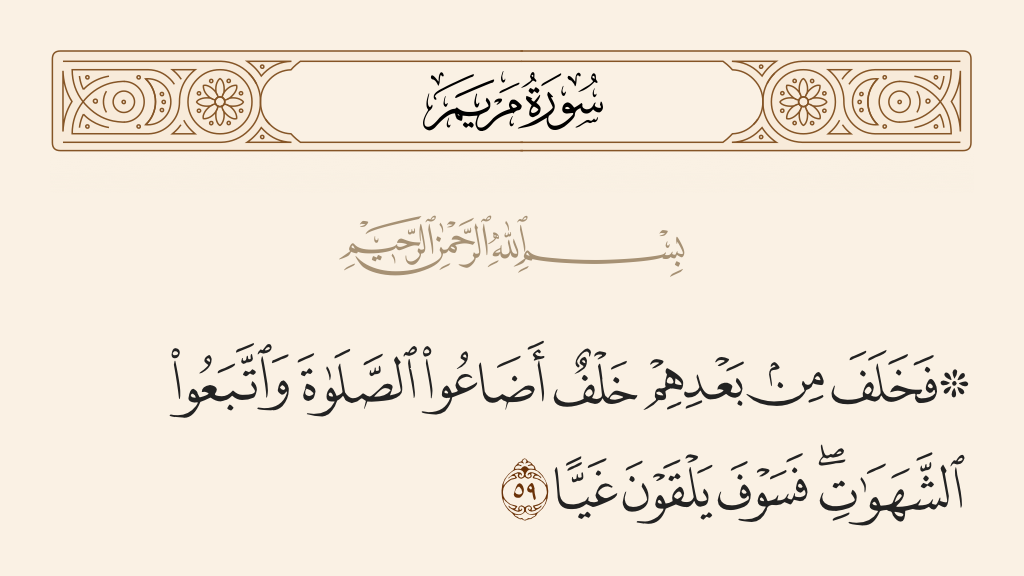 سُورَةُ مَرْيَمَ
بِسْمِ ٱللَّهِ ٱلرَّحْمَٰنِ ٱلرَّحِيمِ
۞فَخَلَفَ مِنۢ بَعْدِهِمْ خَلْفٌ أَضَاعُوا۟ ٱلصَّلَوٰةَ وَٱتَّبَعُوا۟
ٱلشَّهَوَٰتِ ۖ فَسَوْفَ يَلْقَوْنَ غَيًّا ٥٩